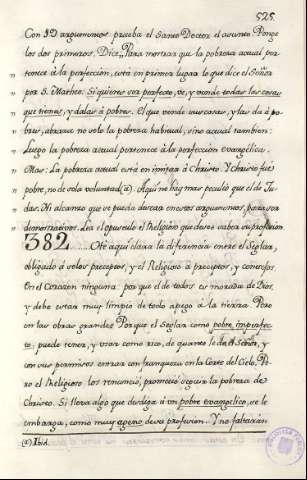 525.
Con 19 argumentos prueba el Santo Doctor el asunto. Pongo
los dos primeros. Dice: Para mostrar que la pobreza actual per-
tenece à la perfección, está en primer lugar lo que dice el Señor
por S. Matheo: Si quieres ser perfecto, ve, y vende todas las cosas
que tienes, y dalas à pobres. El que vende sus cosas, y las dà à po-
bres, abraza no solo la pobreza habitual, sino actual tambien:
Luego la pobreza actual pertenece à la perfección evangelica.
Mas: La pobreza actual está en imitar à Christo. Y Christo fué
pobre, no de sola voluntad (a). Aqui no hay mas peculio que el de Ju-
das. Ni alcanzo que se pueda buscar en estos argumentos, para ser
demonstrativos. Lea el opusculo el Religioso que desee saber su profesion.
382 ... Hé aqui clara la diferencia entre el Seglar,
obligado à solos preceptos, y el Religioso à preceptos, y consejos.
En el Corazon ninguna: porque el de todos es morada de Dios,
y debe estar muy limpio de todo apego à la tierra. Pero
en las obras grande: Porque el Seglar como pobre imperfec-
to, puede tener, y usar como rico, de quanto le dà el Señor, y
con sus permisos entrar con franqueza en la Corte del Cielo. Pe-
ro el Religioso los renunció, prometió seguir la pobreza de
Christo. Si lleva algo que desdiga à un pobre evangelico, se le
embarga, como muy ageno de su profesion. Y no faltarán
(a) Ibid.